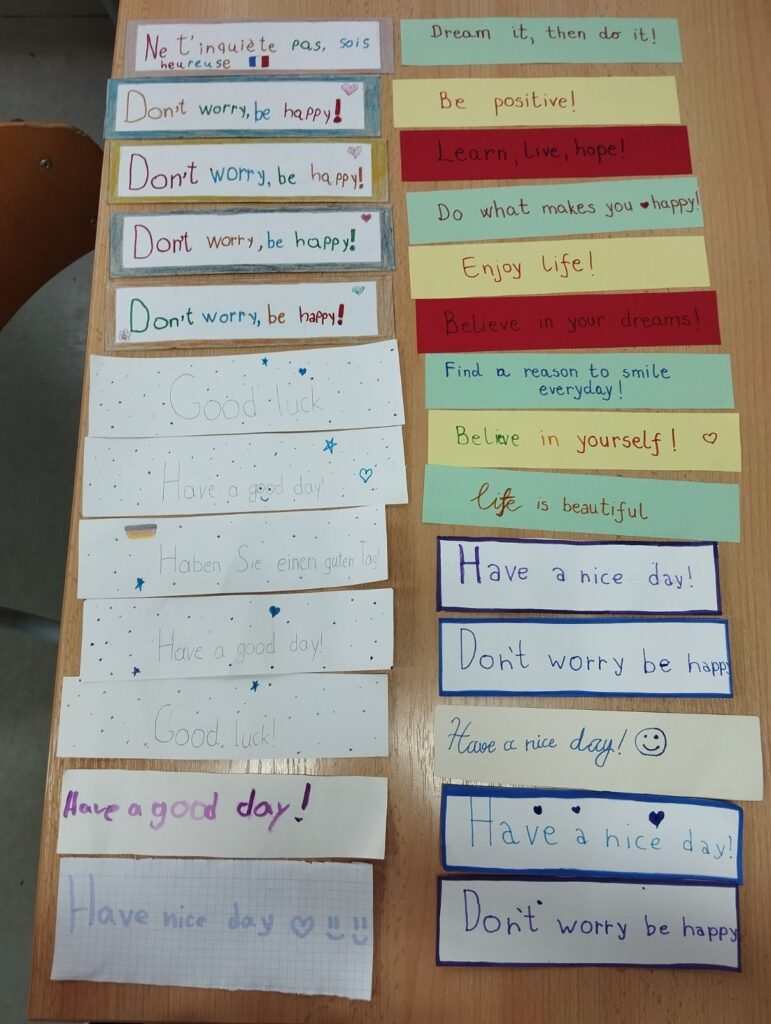 Ne t'inquiète pas, sois
heureuse
Don't worry, be happy!
Don't worry, be happy!
Don't worry, be happy!
Don't worry, be happy!
Good luck
Have a good day!
Haben Sie einen guten Tag!
Have a good day!
Good luck!
Have a good day!
Have nice day
Dream it, then do it!
Be positive!
Learn, live, hope!
Do what makes you happy!
Enjoy life!
Believe in your dreams!
Find a reason to smile
everyday!
Believe in yourself!
life is beautiful
Have a nice day!
Don't worry be happy
Have a nice day!
Have a nice day!
Don't worry be happy